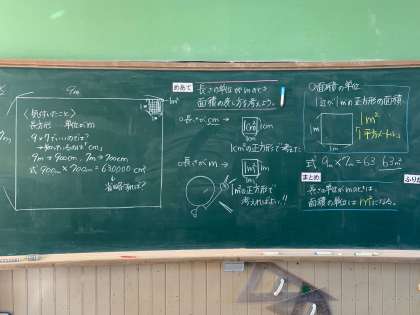 9m
7m
1m²
〈気付いたこと〉
長方形 単位がm
9×7でいいのでは?
→知りたいものは「cm」
9m→900cm、7m→700cm
式 900cm×700cm=630000cm²
めあて
長さの単位がmのとき
面積の表し方を考えよう。
○長さがcm→
1cm²
1cm
1cm
1cm²の正方形で考えた
○長さがm→
1m²
1m
1m
1m²の正方形で
考えればよい!!
○面積の単位
1辺が1mの正方形の面積
1m
1m
1m²
「1平方メートル」
式 9m×7m=63 63m²
まとめ
長さの単位がmのときは、
面積の単位はm²になる。
ふり